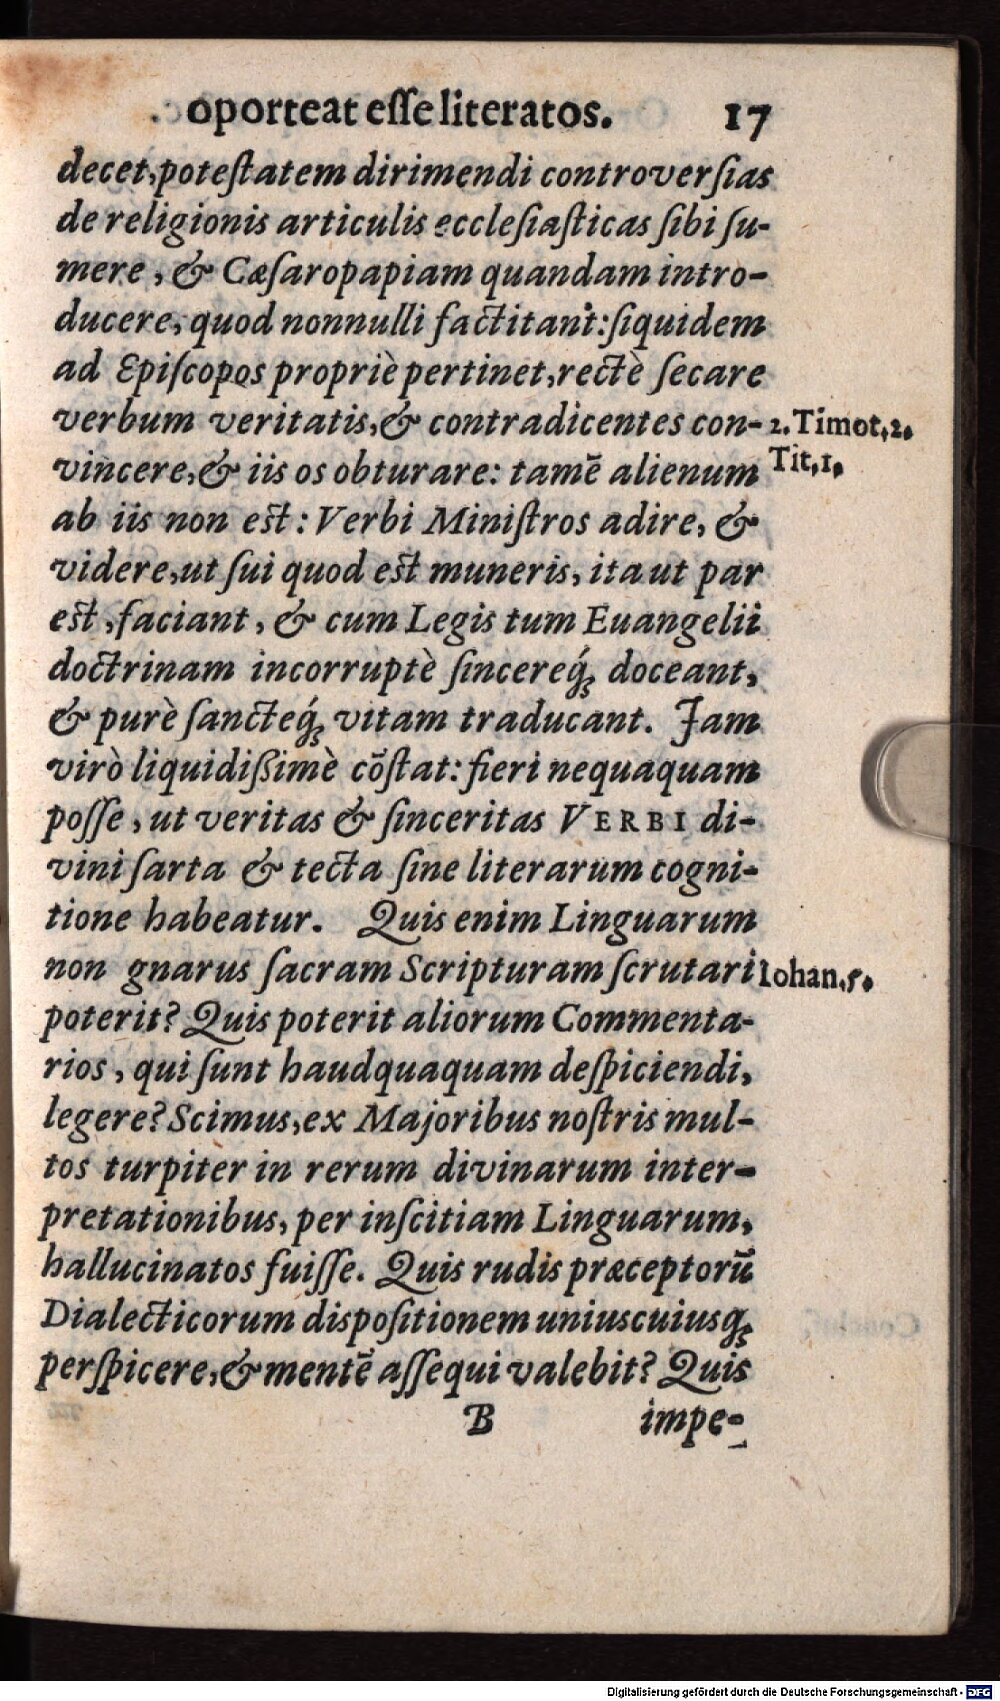 oporteat eſſe literatos. 17
decet, poteſtatem dirimendi controverſias
de religionis articulis eccleſiaſticas ſibi ſu-
mere, & Cæſaropapiam quandam intro-
ducere, quod nonnulli factitant: ſiquidem
ad Epiſcopos propriè pertinet, rectè ſecare
verbum veritatis, & contradicentes con- 2. Timot. 2.
vincere, & iis os obturare: tamẽ alienum Tit. 1.
ab iis non eſt: Verbi Miniſtros adire, &
videre, ut ſui quod eſt muneris, ita ut par
eſt, faciant, & cum Legis tum Euangelii
doctrinam incorruptè ſincereq́; doceant,
& purè ſancteq́; vitam traducant. Jam
virò liquidißimè cõſtat: fieri nequaquam
poſſe, ut veritas & ſinceritas VERBI di-
vini ſarta & tecta ſine literarum cogni-
tione habeatur. Quis enim Linguarum
non gnarus ſacram Scripturam ſcrutari Iohan. 5.
poterit? Quis poterit aliorum Commenta-
rios, qui ſunt haudquaquam deſpiciendi,
legere? Scimus, ex Majoribus noſtris mul-
tos turpiter in rerum divinarum inter-
pretationibus, per inſcitiam Linguarum,
hallucinatos fuiſſe. Quis rudis præceptorũ
Dialecticorum dispoſitionem uniuscuiusq;
perſpicere, & mentẽ aſſequi valebit? Quis
B impe-
Digitalisierung gefördert durch die Deutsche Forschungsgemeinschaft - DFG